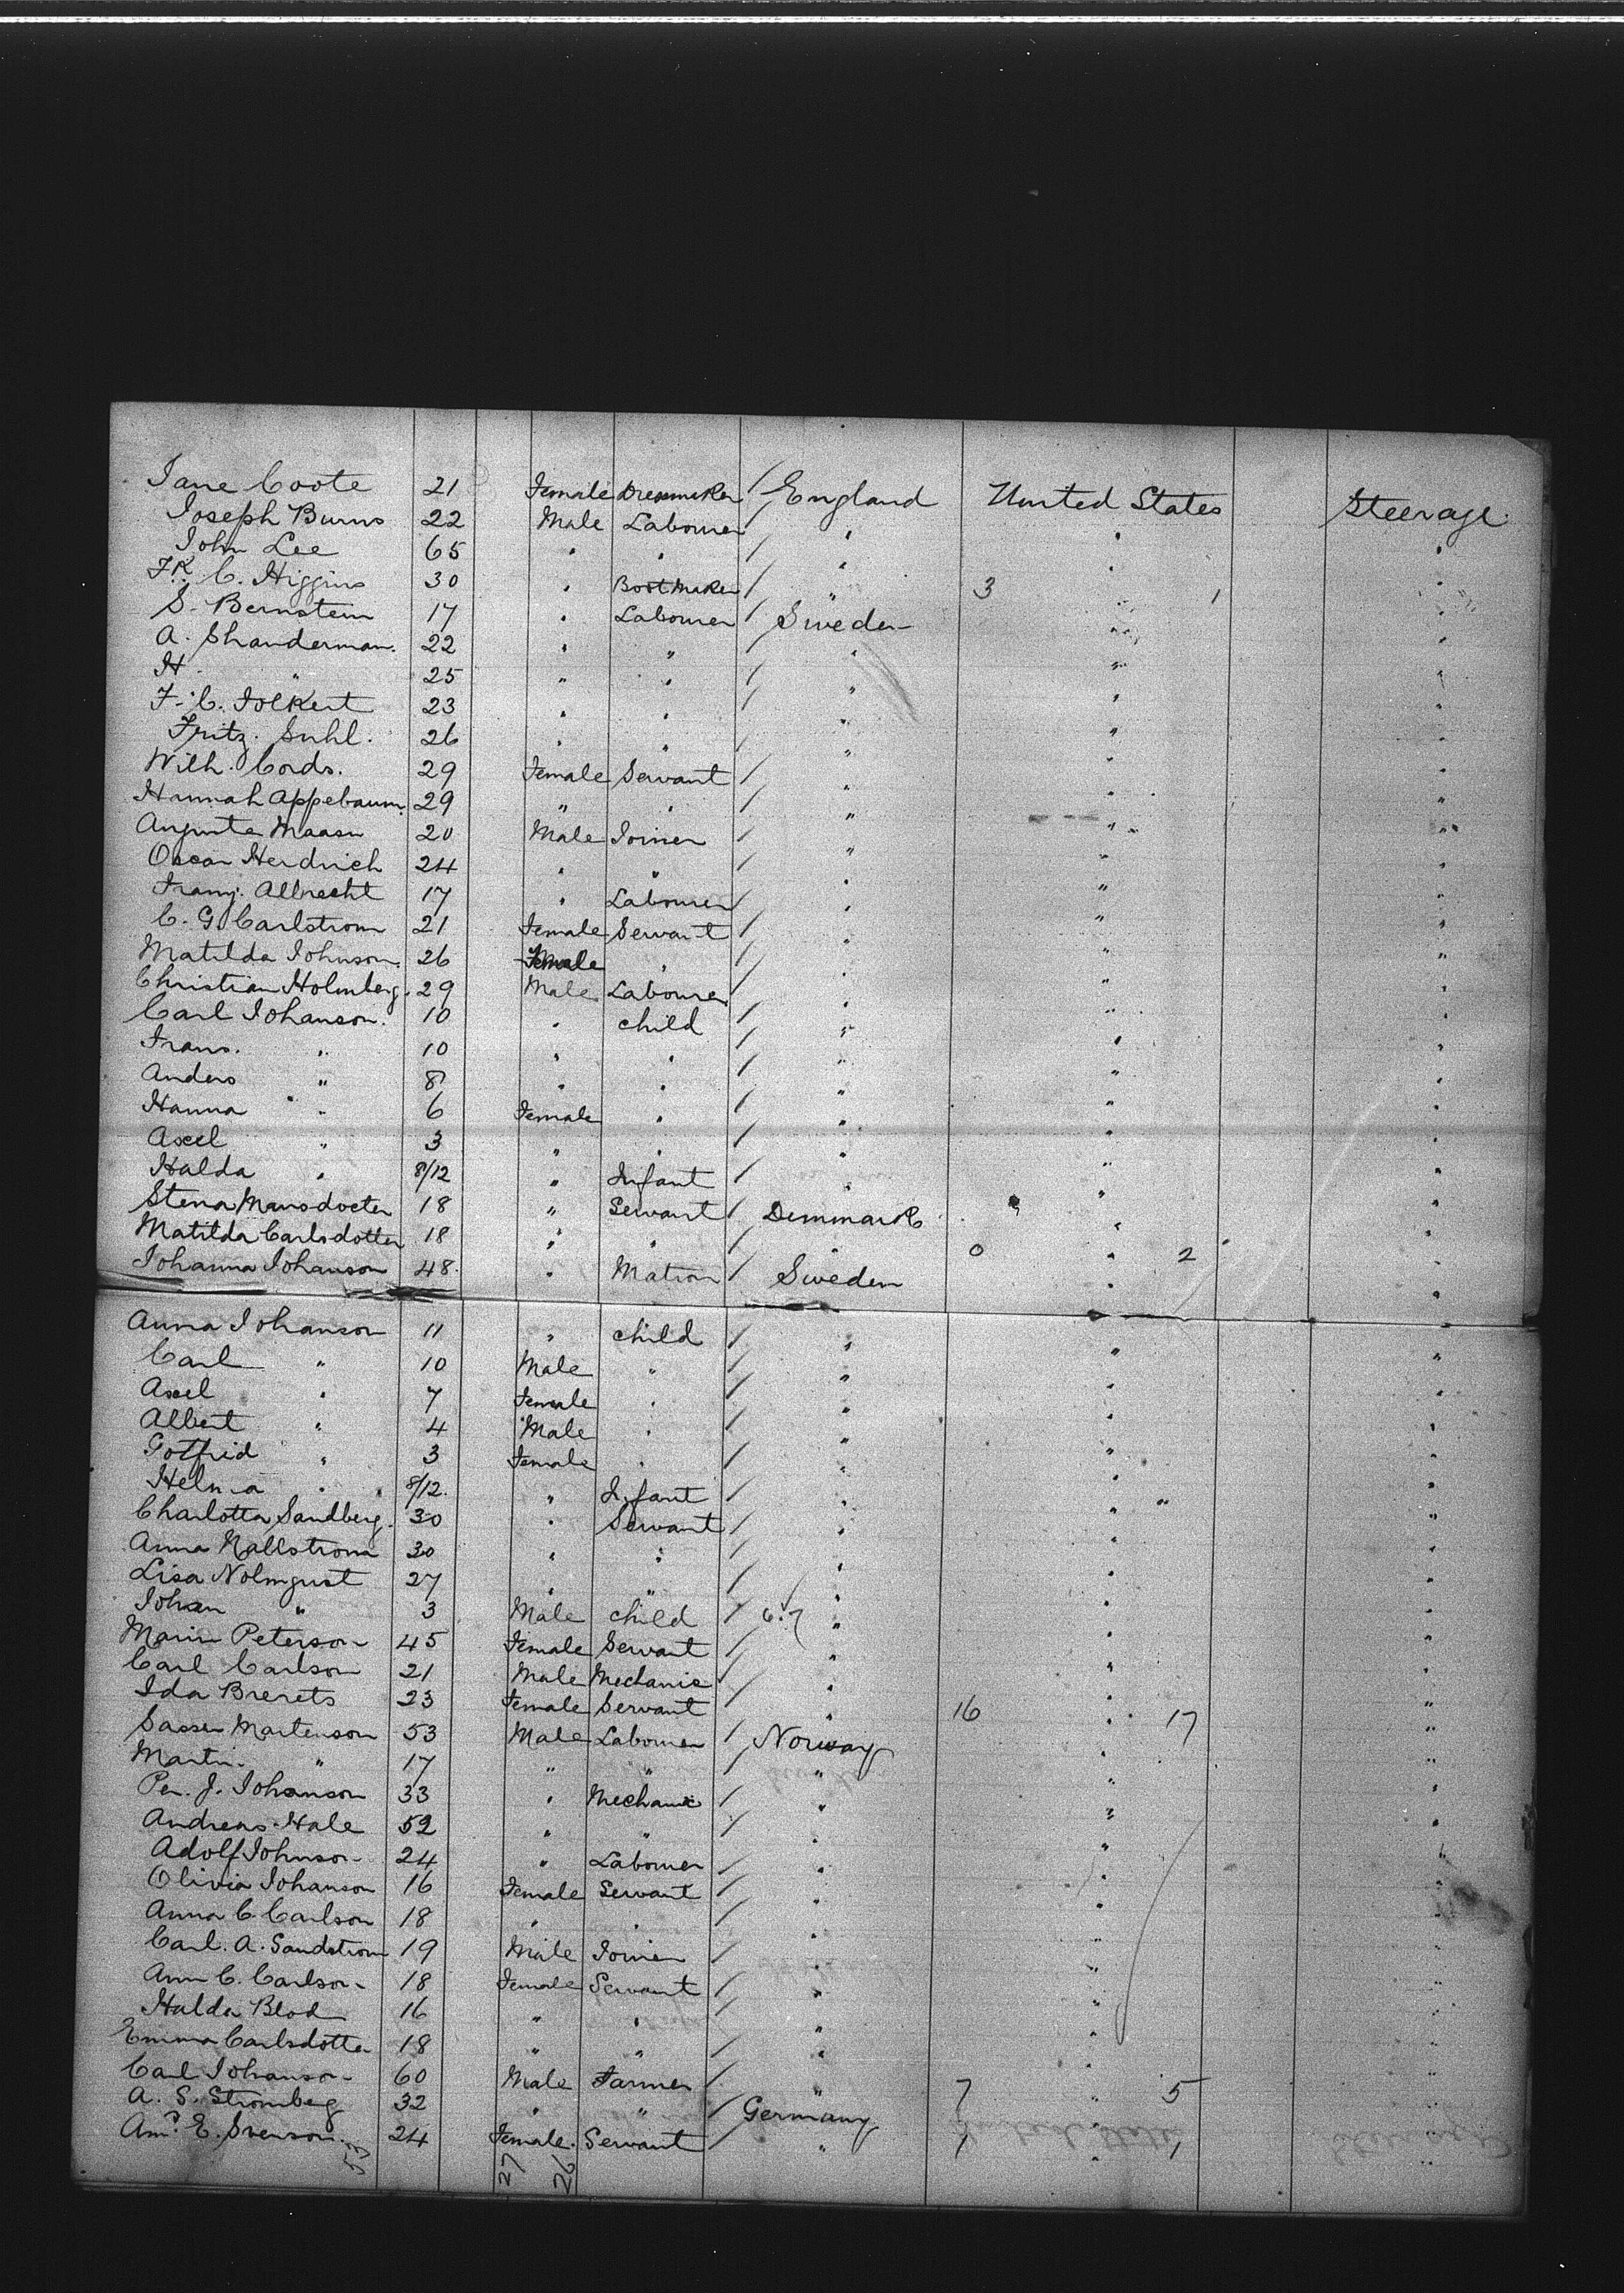 Jane Coote 21 Female Dressmaker / England United States Steerage
Joseph Burns 22 Male Labourer / " " "
John Lee 65 " " / " " "
C. Higgins 30 " Bootmaker / " 3 " 1 "
S. Bernstein 17 " Labourer / Sweden " "
A. Shanderman. 22 " " / " " "
H. " 25 " " / " " "
F. C. Iolkert 23 " " / " " "
Fritz. Suhl. 26 " " / " " "
Wilh. Cords. 29 Female Servant / " " "
Hannah Appebaum 29 " " / " " "
Auguste Maasn 20 Male Joiner / " " "
Oscar Herdrich 24 " " / " " "
Franz. Albrecht 17 " Labourer / " " "
C. G. Carlstrom 21 Female Servant / " " "
Matilda Johnson. 26 Female " / " " "
Christian Holmberg. 29 Male Labourer / " " "
Carl Johanson. 10 " child / " " "
Frans. " 10 " " / " " "
Anders " 8 " " / " " "
Hanna " 6 Female " / " " "
Axel " 3 " " / " " "
Halda " 8/12 " Infant / " " "
Stena Mansdocter 18 " Servant / Denmark " "
Matilda Carlsdotter 18 " " / " 0 " 2 "
Johanna Johanson 48. " Matron / Sweden " "
Anna Johanson 11 " child / " " "
Carl " 10 Male " / " " "
Axel " 7 Female " / " " "
Albert " 4 Male " / " " "
Gotfrid " 3 Female " / " " "
Helma " 8/12. " Infant / " " "
Charlotta Sandberg. 30 " Servant / " " "
Anna Kallstrom 30 " " / " " "
Lisa Nolmqust 27 " " / " " "
Johan " 3 Male child / " " "
Marin Peterson 45 Female Servant / " " "
Carl Carlson 21 Male Mechanic / " " "
Ida Brerets 23 Female Servant / " 16 " 17 "
Sassen Martenson 53 Male Labourer / Norway " "
Martin " 17 " " / " " "
Per. J. Johanson 33 " Mechanic / " " "
Andreas Hale 52 " " / " " "
Adolf Johnson 24 " Labourer / " " "
Olivia Johanson 16 Female Servant / " " "
Anna C. Carlson 18 " " / " " "
Carl. A. Sandstrom 19 Male Joiner / " " "
Ann C. Carlson 18 Female Servant / " " "
Halda Blod 16 " " / " " "
Emma Carlsdotter 18 " " / " " "
Carl Johanson 60 Male Farmer / " 7 " 5 "
A. S. Stromberg 32 " " / Germany "
E. Svenson. 24 Female. Servant / " 1 " 1 "
53 27 26